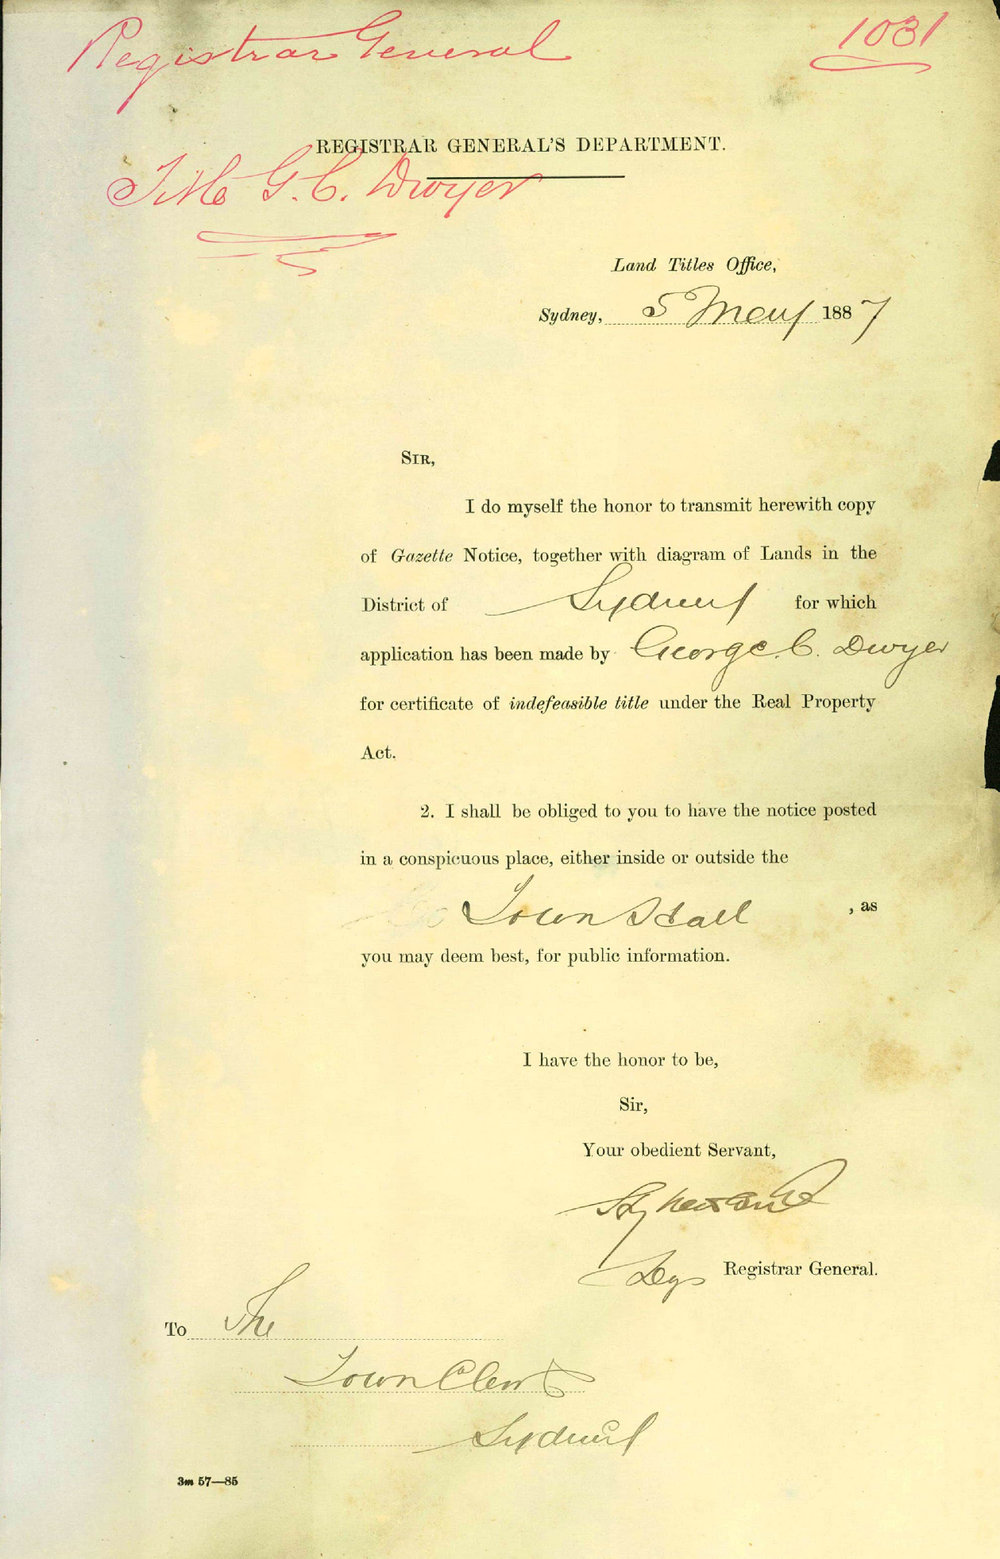 Registrar General 1031
REGISTRAR GENERAL'S DEPARTMENT.
Title G. C. Dwyer
Land Titles Office,
Sydney, 5 May 1887
SIR,
I do myself the honor to transmit herewith copy
of Gazette Notice, together with diagram of Lands in the
District of Sydney for which
application has been made by George C. Dwyer
for certificate of indefeasible title under the Real Property
Act.
2. I shall be obliged to you to have the notice posted
in a conspicuous place, either inside or outside the
Town Hall , as
you may deem best, for public information.
I have the honor to be,
Sir,
Your obedient Servant,
Registrar General.
To The
Town Clerk
Sydney
3m 57—85